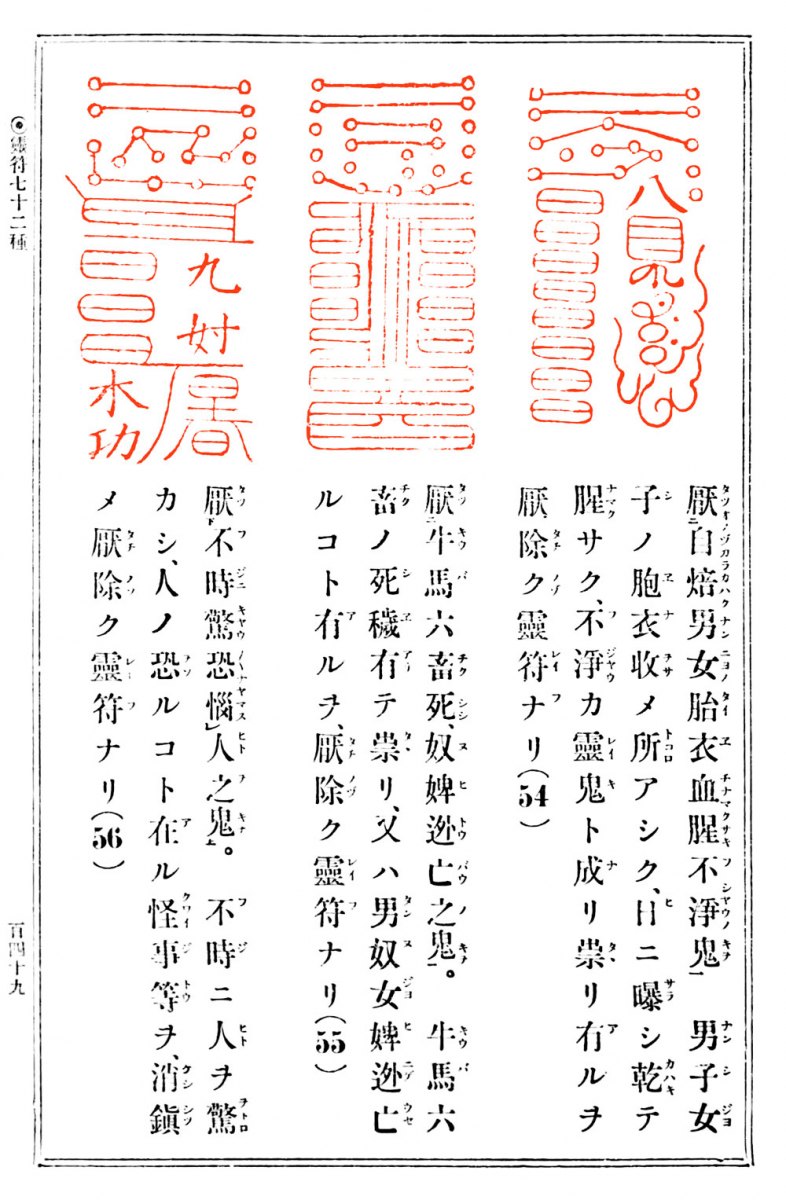 ◉靈符七十二種
八
九
水
功
厭自焙男女胎衣血腥不淨鬼 男子女
子ノ胞衣收メ所アシク、日ニ曝シ乾テ
腥サク、不淨カ靈鬼ト成リ祟リ有ルヲ
厭除ク靈符ナリ(54)
厭牛馬六畜死、奴婢迯亡之鬼。 牛馬六
畜ノ死穢有テ祟リ、又ハ男奴女婢迯亡
ルコト有ルヲ、厭除ク靈符ナリ(55)
厭不時驚恐惱人之鬼。 不時ニ人ヲ驚
カシ、人ノ恐ルコト在ル怪事等ヲ、消鎭
メ厭除ク靈符ナリ(56)
百四十九